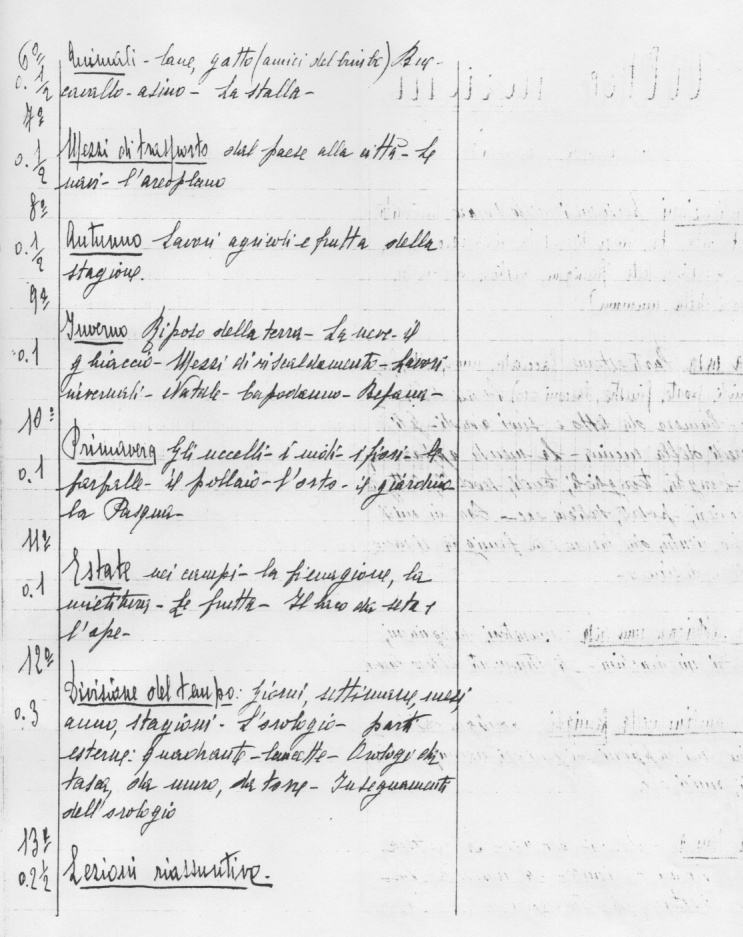 6ª
o. 1/2
Animali - Cane, gatto (amici del bimbo) Bue -
cavallo - asino - La stalla -
7ª
o. 1/2
Mezzi di trasporto dal paese alla città - Le
navi - l'areoplano
8ª
o. 1/2
Autunno Lavori agricoli e frutta della
stagione.
9ª
o. 1
Inverno Riposo della terra - La neve - il
ghiaccio - Mezzi di riscaldamento - Lavori
invernali - Natale - Capodanno - Befana -
10ª
o. 1
Primavera Gli uccelli - i nidi - i fiori - le
farfalle - il pollaio - l'orto - il giardino
la Pasqua -
11ª
o. 1
Estate nei campi - la fienagione, la
mietitura - Le frutta - Il baco da seta e
l'ape -
12ª
o. 3
Divisione del tempo: giorni, settimane, mesi,
anno, stagioni - L'orologio - parti
esterne: quadrante - lancette - Orologi da
tasca, da muro, da torre - Insegnamenti
dell'orologio
13ª
o. 2 1/2
Lezioni riassuntive.